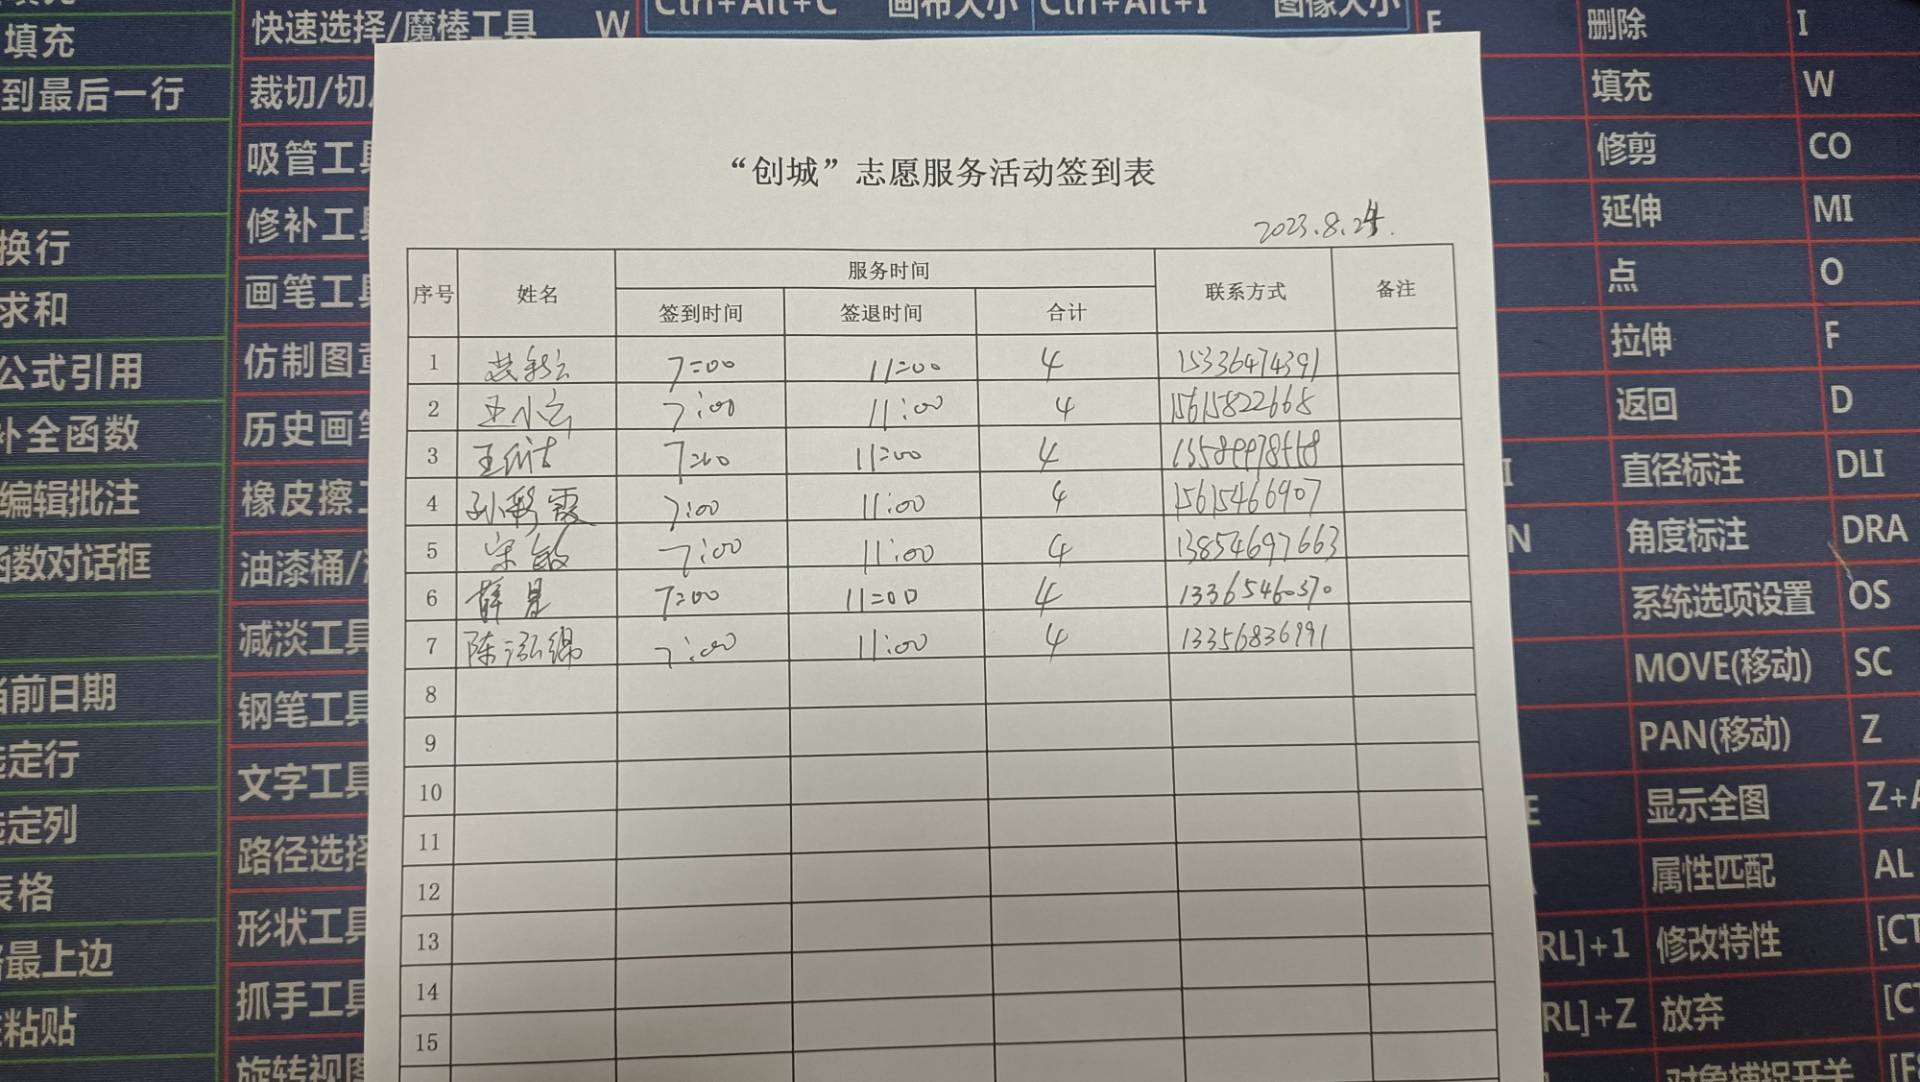 填充
到最后一行
换行
求和
公式引用
补全函数
编辑批注
函数对话框
当前日期
选定行
选定列
表格
最上边
粘贴
快速选择/魔棒工具 W
裁切/切
吸管工具
修补工具
画笔工具
仿制图章
历史画笔
橡皮擦工
油漆桶/
减淡工具
钢笔工具
文字工具
路径选择
形状工具
抓手工具
旋转视图
Ctrl+Alt+C 画布大小 Ctrl+Alt+I 图像大小
“创城”志愿服务活动签到表
2023.8.24.
序号 姓名 服务时间 联系方式 备注
签到时间 签退时间 合计
1 7:00 11:00 4 15336474391
2 王小云 7:00 11:00 4 15615822668
3 7:00 11:00 4
4 孙彩霞 7:00 11:00 4 15615466907
5 宋敏 7:00 11:00 4 13854697663
6 薛昆 7:00 11:00 4 13365460370
7 陈泓锦 7:00 11:00 4 13356836991
8
9
10
11
12
13
14
15
F 删除 I
填充 W
修剪 CO
延伸 MI
点 O
拉伸 F
返回 D
直径标注 DLI
角度标注 DRA
系统选项设置 OS
MOVE(移动) SC
PAN(移动) Z
显示全图 Z+A
属性匹配 AL
RL]+1 修改特性 [CT
RL]+Z 放弃 [CT
对象捕捉开关 [F8